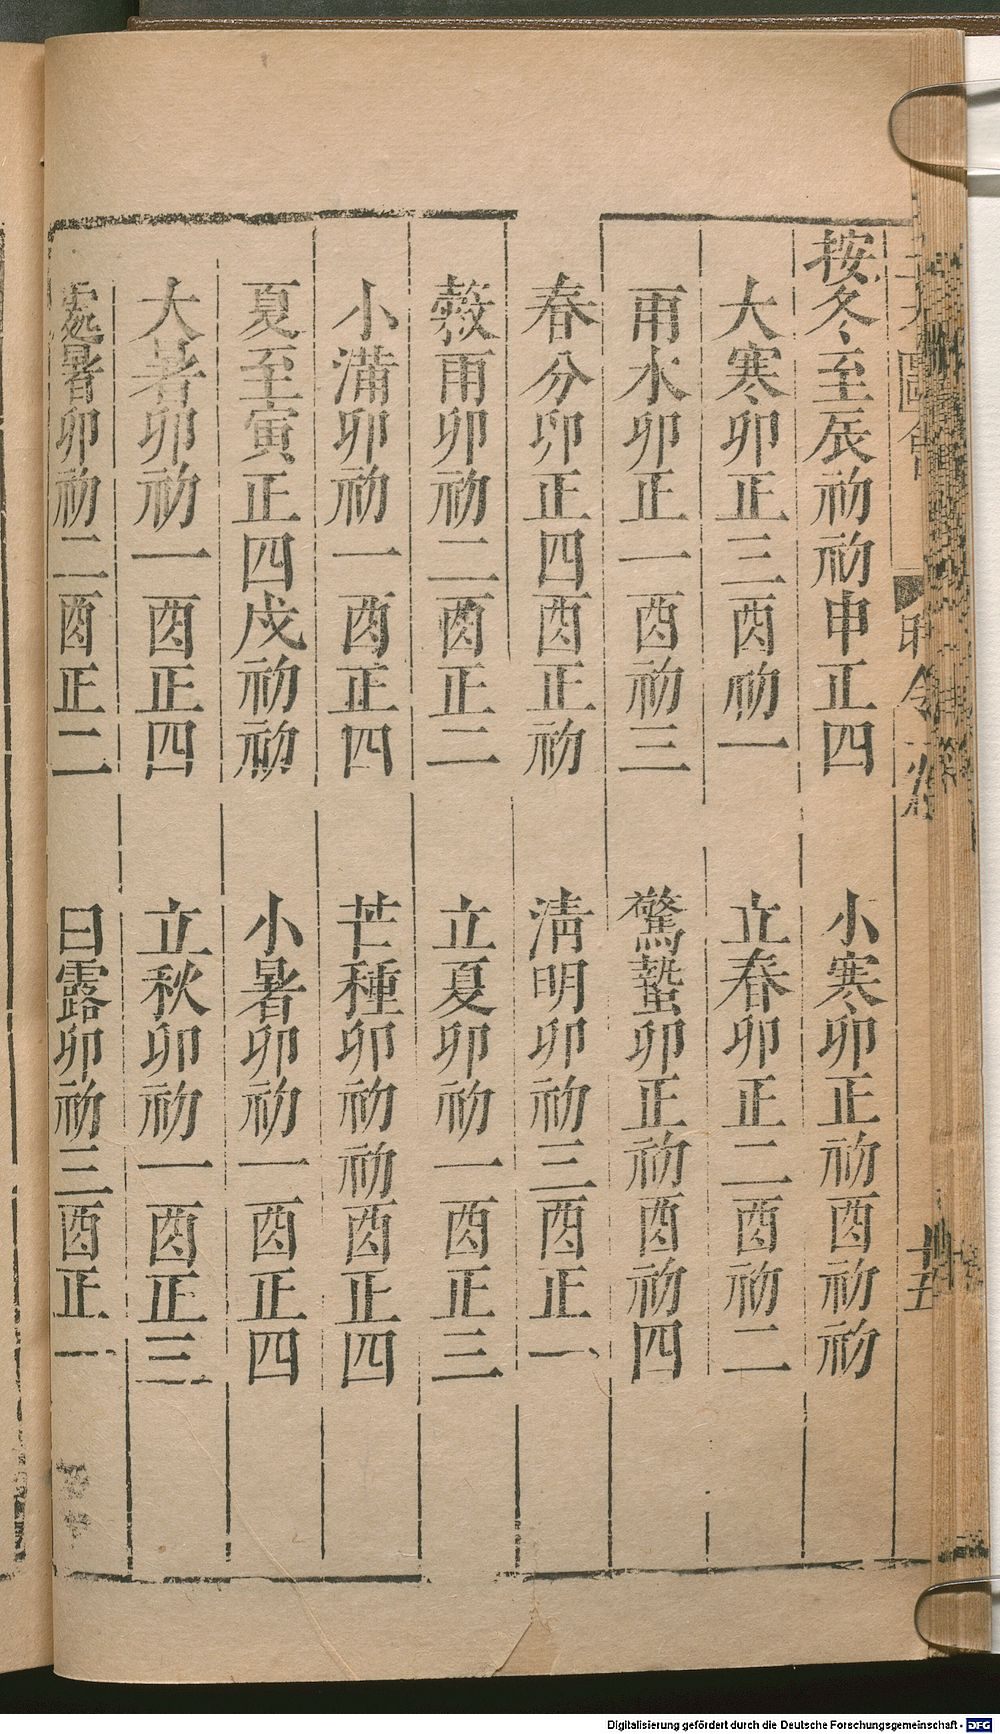 按冬至辰初初申正四　小寒卯正初酉初初
大寒卯正三酉初一　立春卯正二酉初二
雨水卯正一酉初三　驚蟄卯正初酉初四
春分卯正四酉正初　淸明卯初三酉正一
穀雨卯初二酉正二　立夏卯初一酉正三
小滿卯初一酉正四　芒種卯初初酉正四
夏至寅正四戍初初　小暑卯初一酉正四
大暑卯初一酉正四　立秋卯初一酉正三
處暑卯初二酉正二　白露卯初三酉正一
十五
Digitalisierung gefördert durch die Deutsche Forschungsgemeinschaft - DFG